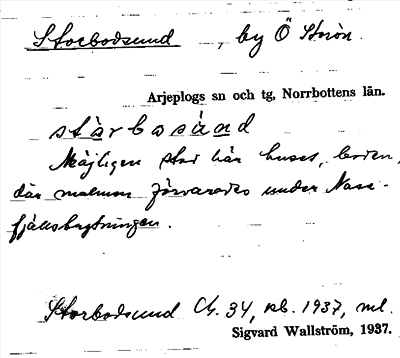 Storbodsund, by Ö Storön.
Arjeplogs sn och tg, Norrbottens län.
stårbosúnd
Möjligen stod här huset, boden,
där malmen förvarades under Nasa-
fjällsbrytningen.
Storbodsund Ch. 34, sb. 1937, ml.
Sigvard Wallström, 1937.